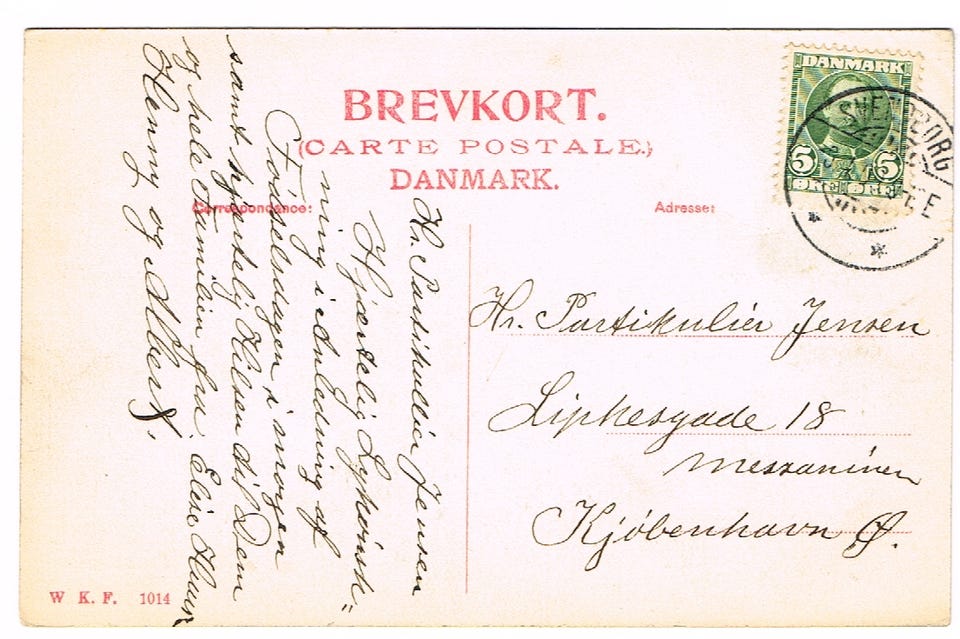 BREVKORT.
(CARTE POSTALE.)
DANMARK.
Correspondance:
Adresse:
DANMARK
5 5
ØRE ØRE
SVENDBORG
Hr. Partikulier Jensen
Hjertelig Lykønsk=
ning i Anledning af
Födselsdagen i morgen
samt hjertelig Hilsen til Dem
og hele Familien fra Elise
Henny og Albert.
Hr. Partikulier Jensen
Lipkesgade 18
Messaninen
Kjöbenhavn Ø.
W. K. F. 1014